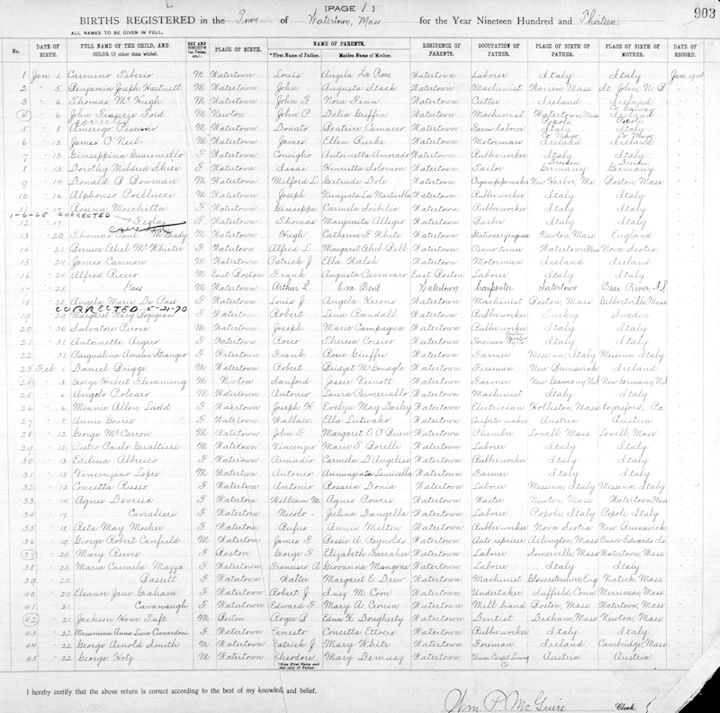 [PAGE 1]
903
BIRTHS REGISTERED in the Town of Watertown, Mass for the Year Nineteen Hundred and Thirteen
ALL NAMES TO BE GIVEN IN FULL.
No. DATE OF BIRTH. FULL NAME OF THE CHILD, AND COLOR (if other than white). PLACE OF BIRTH. NAME OF PARENTS. *First Name of Father. Maiden Name of Mother. RESIDENCE OF PARENTS. OCCUPATION OF FATHER. PLACE OF BIRTH OF FATHER. PLACE OF BIRTH OF MOTHER. DATE OF RECORD.
1 Jan 1 Carmino Liberio M Watertown Louis Angela De Rosa Watertown Laborer Italy Italy
2 5 Benjamin Joseph Hartnett M Watertown John Augusta Stack Watertown Machinist Warren Mass St. John N.B.
3 6 Thomas McHugh M Watertown John F Nora Finn Watertown Cutter Ireland Ireland
4 John Francis Ford M Newton John P Delia Griffin Watertown Machinist Watertown, Mass
5 8 Amerigo Pescano M Watertown Donato Beatrice Camareo Watertown Farm laborer Italy Italy
6 13 James O'Neil M Watertown James Ellen Burke Watertown Motorman Ireland Ireland
7 13 Giuseppina Guarinello F Watertown Antoinetta Amorado Watertown Rubberworker Italy Italy
8 13 Dorothy Mildred Shire F Watertown Isaac Henrietta Solomon Watertown Tailor Germany Germany
9 14 Donald A Bowman M Watertown Milford L Gertrude Dole Watertown Organ pipe maker New Harbor Me Boston Mass
10 16 Alphonso Poillucci M Watertown Joseph Watertown Rubberworker Italy Italy
11 17 Rosina Maichetta F Watertown Giuseppe Carmela Watertown Rubberworker Italy Italy
1-6-65 CORRECTED
12 17 F Watertown Thomas Marguerita Allegro Watertown Barber Italy Italy
13 20 Thomas Paul M Watertown Hugh Catherine F White Watertown Newton Mass England
14 21 Bernice Ethel McWhirter F Watertown Alfred L Margaret Ethel Bell Watertown Piano tuner Watertown Mass Nova Scotia
15 24 James Cannon M Watertown Patrick J Ella Walsh Watertown Motorman Ireland Ireland
16 24 Alfred Ricco M East Boston Frank Augusta East Boston Laborer Italy Italy
17 25 M Watertown Arthur L Eva Watertown Carpenter Watertown Bear River N.S.
18 28 Angela Marie De Pass F Watertown Louis J Angela Kerens Watertown Machinist Boston, Mass Gilbertville Mass
CORRECTED 5-21-70
19 29 Margaret Mary F Watertown Robert Lena Randall Watertown Rubberworker Turkey Sweden
20 30 Salvatore M Watertown Joseph Marie Campagna Watertown Rubberworker Italy Italy
21 31 Antoinette F Watertown Rocco Theresa Watertown Foreman Italy Italy
22 31 Pasqualino Amalia F Watertown Frank Rosie Watertown Farmer Messina, Italy Messina, Italy
23 Feb 1 Daniel Briggs M Watertown Robert Bridget McGonagle Watertown Fireman New Brunswick Ireland
24 3 George Herbert Flemming M Newton Sanford Jessie Watertown Farmer New Germany N.S. New Germany N.S.
25 6 Angelo M Watertown Antonio Laura Watertown Machinist Italy Italy
26 6 Minnie Allen Ludd F Watertown Joseph H Evelyn May Dailey Watertown Electrician Holliston, Mass Pa
27 6 Annie F Watertown Wallace Ella Watertown Austria Austria
28 12 George McCarron M Watertown John F Margaret E O'Brien Watertown Plumber Lowell Mass Lowell, Mass
29 12 Pietro Paulo Gualtieri M Watertown Vincenzo Marie S Borelli Watertown Laborer Italy Italy
30 13 Edelina Alberico F Watertown Carmela D'Angeliso Watertown Rubberworker Italy Italy
31 12 Vincenzino Lopes M Watertown Antonio Annunziata Watertown Farmer Italy Italy
32 12 Concetta Russo F Watertown Antonio Rosaria Donia Watertown Laborer Messina, Italy Messina, Italy
33 14 Agnes Deveria F Watertown William M Agnes Powers Watertown Waiter Newton Mass Watertown, Mass
34 Cavalieri F Watertown Nicolo Watertown Laborer Italy Italy
35 18 Reta May Mosher F Watertown Rufus Annie Milton Watertown Rubber worker Nova Scotia New Brunswick
36 19 George Robert Canfield M Watertown James F Bessie A Reynolds Watertown Auto repairer Arlington, Mass Prince Edwards Is
37 20 Mary Reeves F Boston George F Elizabeth Farraher Watertown Laborer Somerville, Mass Watertown, Mass
38 20 Maria Carmela Mazza F Watertown Francesco A Giovanna Mangone Watertown Laborer Italy Italy
39 20 Bassett F Watertown Walter Margaret E Drew Watertown Machinist Gloucestershire, Eng Natick, Mass
40 20 Eleanor Jane Graham F Watertown Robert J Inez McCoon Watertown Undertaker Suffield, Conn Merrimac, Mass
41 21 Cavanaugh F Watertown Edward F Mary A Cronin Watertown Mill hand Boston, Mass Watertown, Mass
42 21 Jackson Howe Taft M Boston Roger B Edna H Dougherty Watertown Dentist Dedham, Mass Newton, Mass
43 22 Massimina Anna Luisa F Watertown Ernesto Concetta Ettore Watertown Rubberworker Italy Italy
44 22 George Arnold Smith M Watertown Patrick J Mary White Watertown Foreman Ireland Cambridge, Mass
45 22 George Hotz M Watertown Theodore Mary Watertown Union Carpet Lining Co Austria Austria
*Give First Name and not only of Father.
I hereby certify that the above return is correct according to the best of my knowledge and belief.
Wm. P. McGuire Clerk